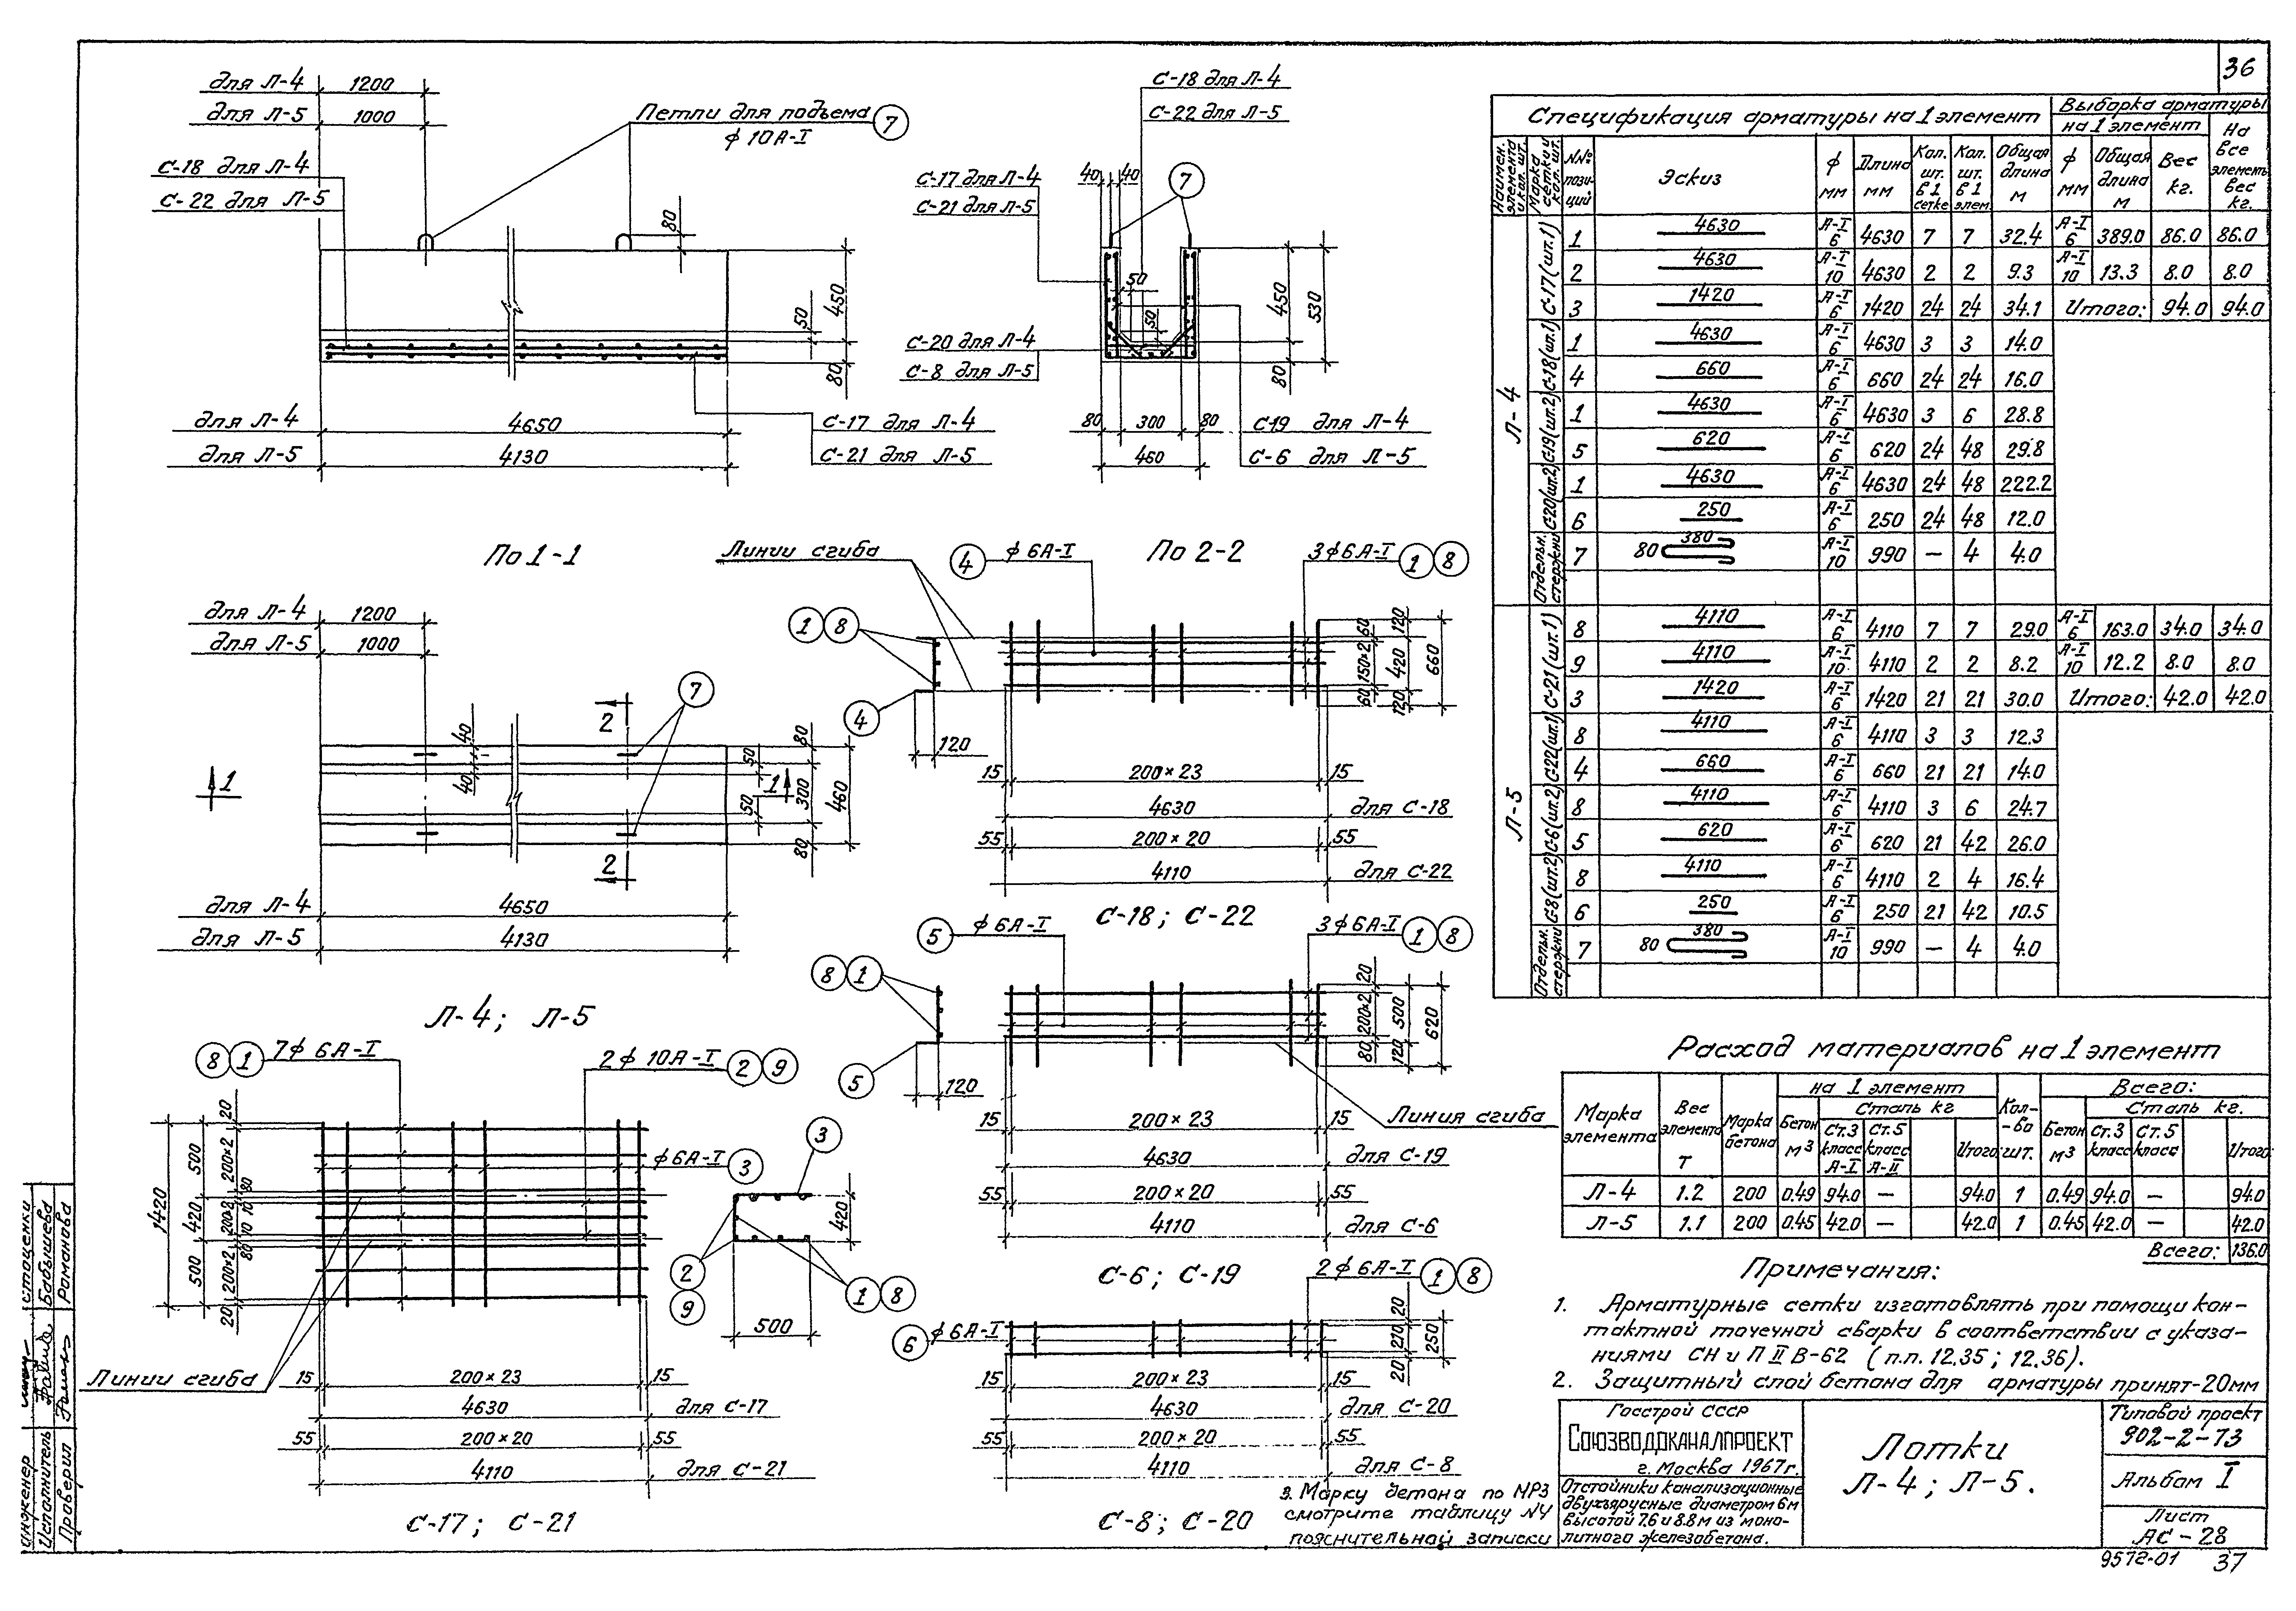 36
для Л-4 1200
для Л-5 1000
С-18 для Л-4
С-22 для Л-5
Петли для подъема 7
ф 10А-I
80
50
450
80
для Л-4 4650
для Л-5 4130
С-17 для Л-4
С-21 для Л-5
По 1-1
С-18 для Л-4
С-22 для Л-5
С-17 для Л-4
С-21 для Л-5
40 40
7
50
50
450
530
80
С-20 для Л-4
С-8 для Л-5
80 300 80
460
С-19 для Л-4
С-6 для Л-5
По 2-2
для Л-4 1200
для Л-5 1000
7
2
40
40
80
50
300
460
50
80
1 1
2
для Л-4 4650
для Л-5 4130
Л-4; Л-5
Линии сгиба
4 ф 6А-I
3 ф 6А-I 1 8
1 8
4
120
60
150×2
60
120
420
120
660
15 200×23 15
4630 для С-18
55 200×20 55
4110 для С-22
С-18; С-22
5 ф 6А-I
3 ф 6А-I 1 8
8 1
5
120
20
200×2
80
500
120
620
Линия сгиба
15 200×23 15
4630 для С-19
55 200×20 55
4110 для С-6
С-6; С-19
2 ф 6А-I 1 8
6 ф 6А-I
20
210
20
250
15 200×23 15
4630 для С-20
55 200×20 55
4110 для С-8
С-8; С-20
8 1 7 ф 6А-I
2 ф 10А-I 2 9
ф 6А-I 3
20
200×2
80
10
200×2
10
80
200×2
20
500
420
500
1420
Линии сгиба
15 200×23 15
4630 для С-17
55 200×20 55
4110 для С-21
С-17; С-21
3
420
2
9
1 8
500
Спецификация арматуры на 1 элемент
Выборка арматуры
на 1 элемент
На все элементы вес кг.
Наимен. элемента и кол. шт.
Марка сетки и кол. шт.
№№ позиций
Эскиз
ф мм
Длина мм
Кол. шт. в 1 сетке
Кол. шт. в 1 элем.
Общая длина м
ф мм
Общая длина м
Вес кг.
Л-4
С-17 (шт.1)
1 4630 А-I 6 4630 7 7 32.4 А-I 6 389.0 86.0 86.0
2 4630 А-I 10 4630 2 2 9.3 А-I 10 13.3 8.0 8.0
3 1420 А-I 6 1420 24 24 34.1 Итого: 94.0 94.0
С-18 (шт.1)
1 4630 А-I 6 4630 3 3 14.0
4 660 А-I 6 660 24 24 16.0
С-19 (шт.2)
1 4630 А-I 6 4630 3 6 28.8
5 620 А-I 6 620 24 48 29.8
С-20 (шт.2)
1 4630 А-I 6 4630 24 48 222.2
6 250 А-I 6 250 24 48 12.0
Отдельн. стержни
7 80 380 А-I 10 990 — 4 4.0
Л-5
С-21 (шт.1)
8 4110 А-I 6 4110 7 7 29.0 А-I 6 163.0 34.0 34.0
9 4110 А-I 10 4110 2 2 8.2 А-I 10 12.2 8.0 8.0
3 1420 А-I 6 1420 21 21 30.0 Итого: 42.0 42.0
С-22 (шт.1)
8 4110 А-I 6 4110 3 3 12.3
4 660 А-I 6 660 21 21 14.0
С-6 (шт.2)
8 4110 А-I 6 4110 3 6 24.7
5 620 А-I 6 620 21 42 26.0
С-8 (шт.2)
8 4110 А-I 6 4110 2 4 16.4
6 250 А-I 6 250 21 42 10.5
Отдельн. стержни
7 80 380 А-I 10 990 — 4 4.0
Расход материалов на 1 элемент
Марка элемента
Вес элемента т
Марка бетона
на 1 элемент
Бетон м3
Сталь кг
Ст.3 класс А-I
Ст.5 класс А-II
Итого
Кол-во шт.
Всего:
Бетон м3
Сталь кг.
Ст.3 класс
Ст.5 класс
Итого
Л-4 1.2 200 0.49 94.0 — 94.0 1 0.49 94.0 — 94.0
Л-5 1.1 200 0.45 42.0 — 42.0 1 0.45 42.0 — 42.0
Всего: 136.0
Примечания:
1. Арматурные сетки изготовлять при помощи кон-
тактной точечной сварки в соответствии с указа-
ниями СН и П II В-62 (п.п. 12.35; 12.36).
2. Защитный слой бетона для арматуры принят-20мм
3. Марку бетона по МРЗ
смотрите таблицу №4
пояснительной записки
Госстрой СССР
СОЮЗВОДОКАНАЛПРОЕКТ
г. Москва 1967г.
Отстойники канализационные
двухъярусные диаметром 6м
высотой 7.6 и 8.8м из моно-
литного железобетона.
Лотки
Л-4; Л-5.
Типовой проект
902-2-73
Альбом I
Лист
АС-28
9572-01 37
инженер Стаценки
Исполнитель Бабышева
Проверил Романова